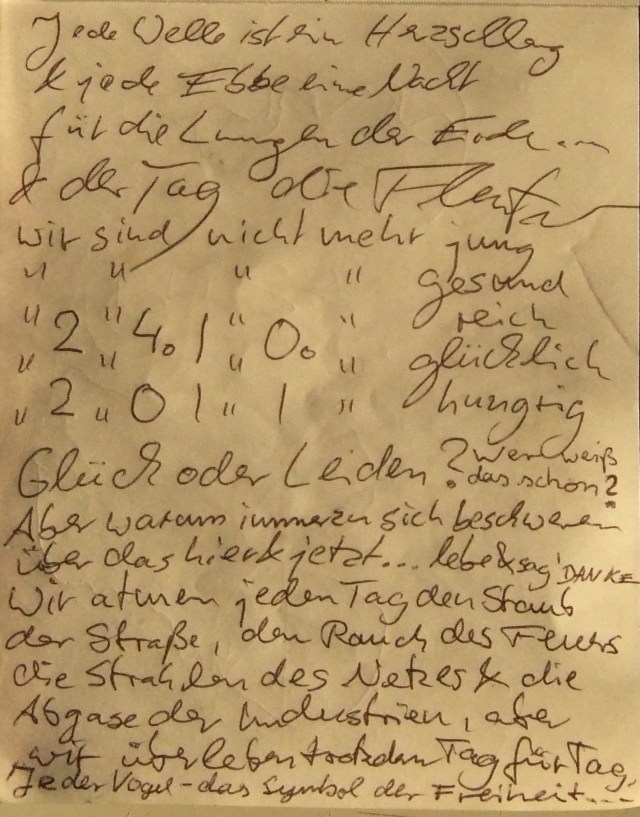 Jede Welle ist ein Herzschlag
& jede Ebbe eine Nacht
für die Lungen der Erde...
& der Tag die Flut
wir sind nicht mehr jung
" " " " gesund
" 2 " 4. 1 " 0. " reich
" " " " glücklich
" 2 " 0 1 " 1 " hungrig
Glück oder Leiden? Wer weiß
das schon?
Aber warum immerzu sich beschweren
über das hier & jetzt... lebe & sag' DANKE
Wir atmen jeden Tag den Staub
der Straße, den Rauch des Feuers
die Strahlen des Netzes & die
Abgase der Industrien, aber
wir überleben trotzdem Tag für Tag.
Jeder Vogel - das Symbol der Freiheit...